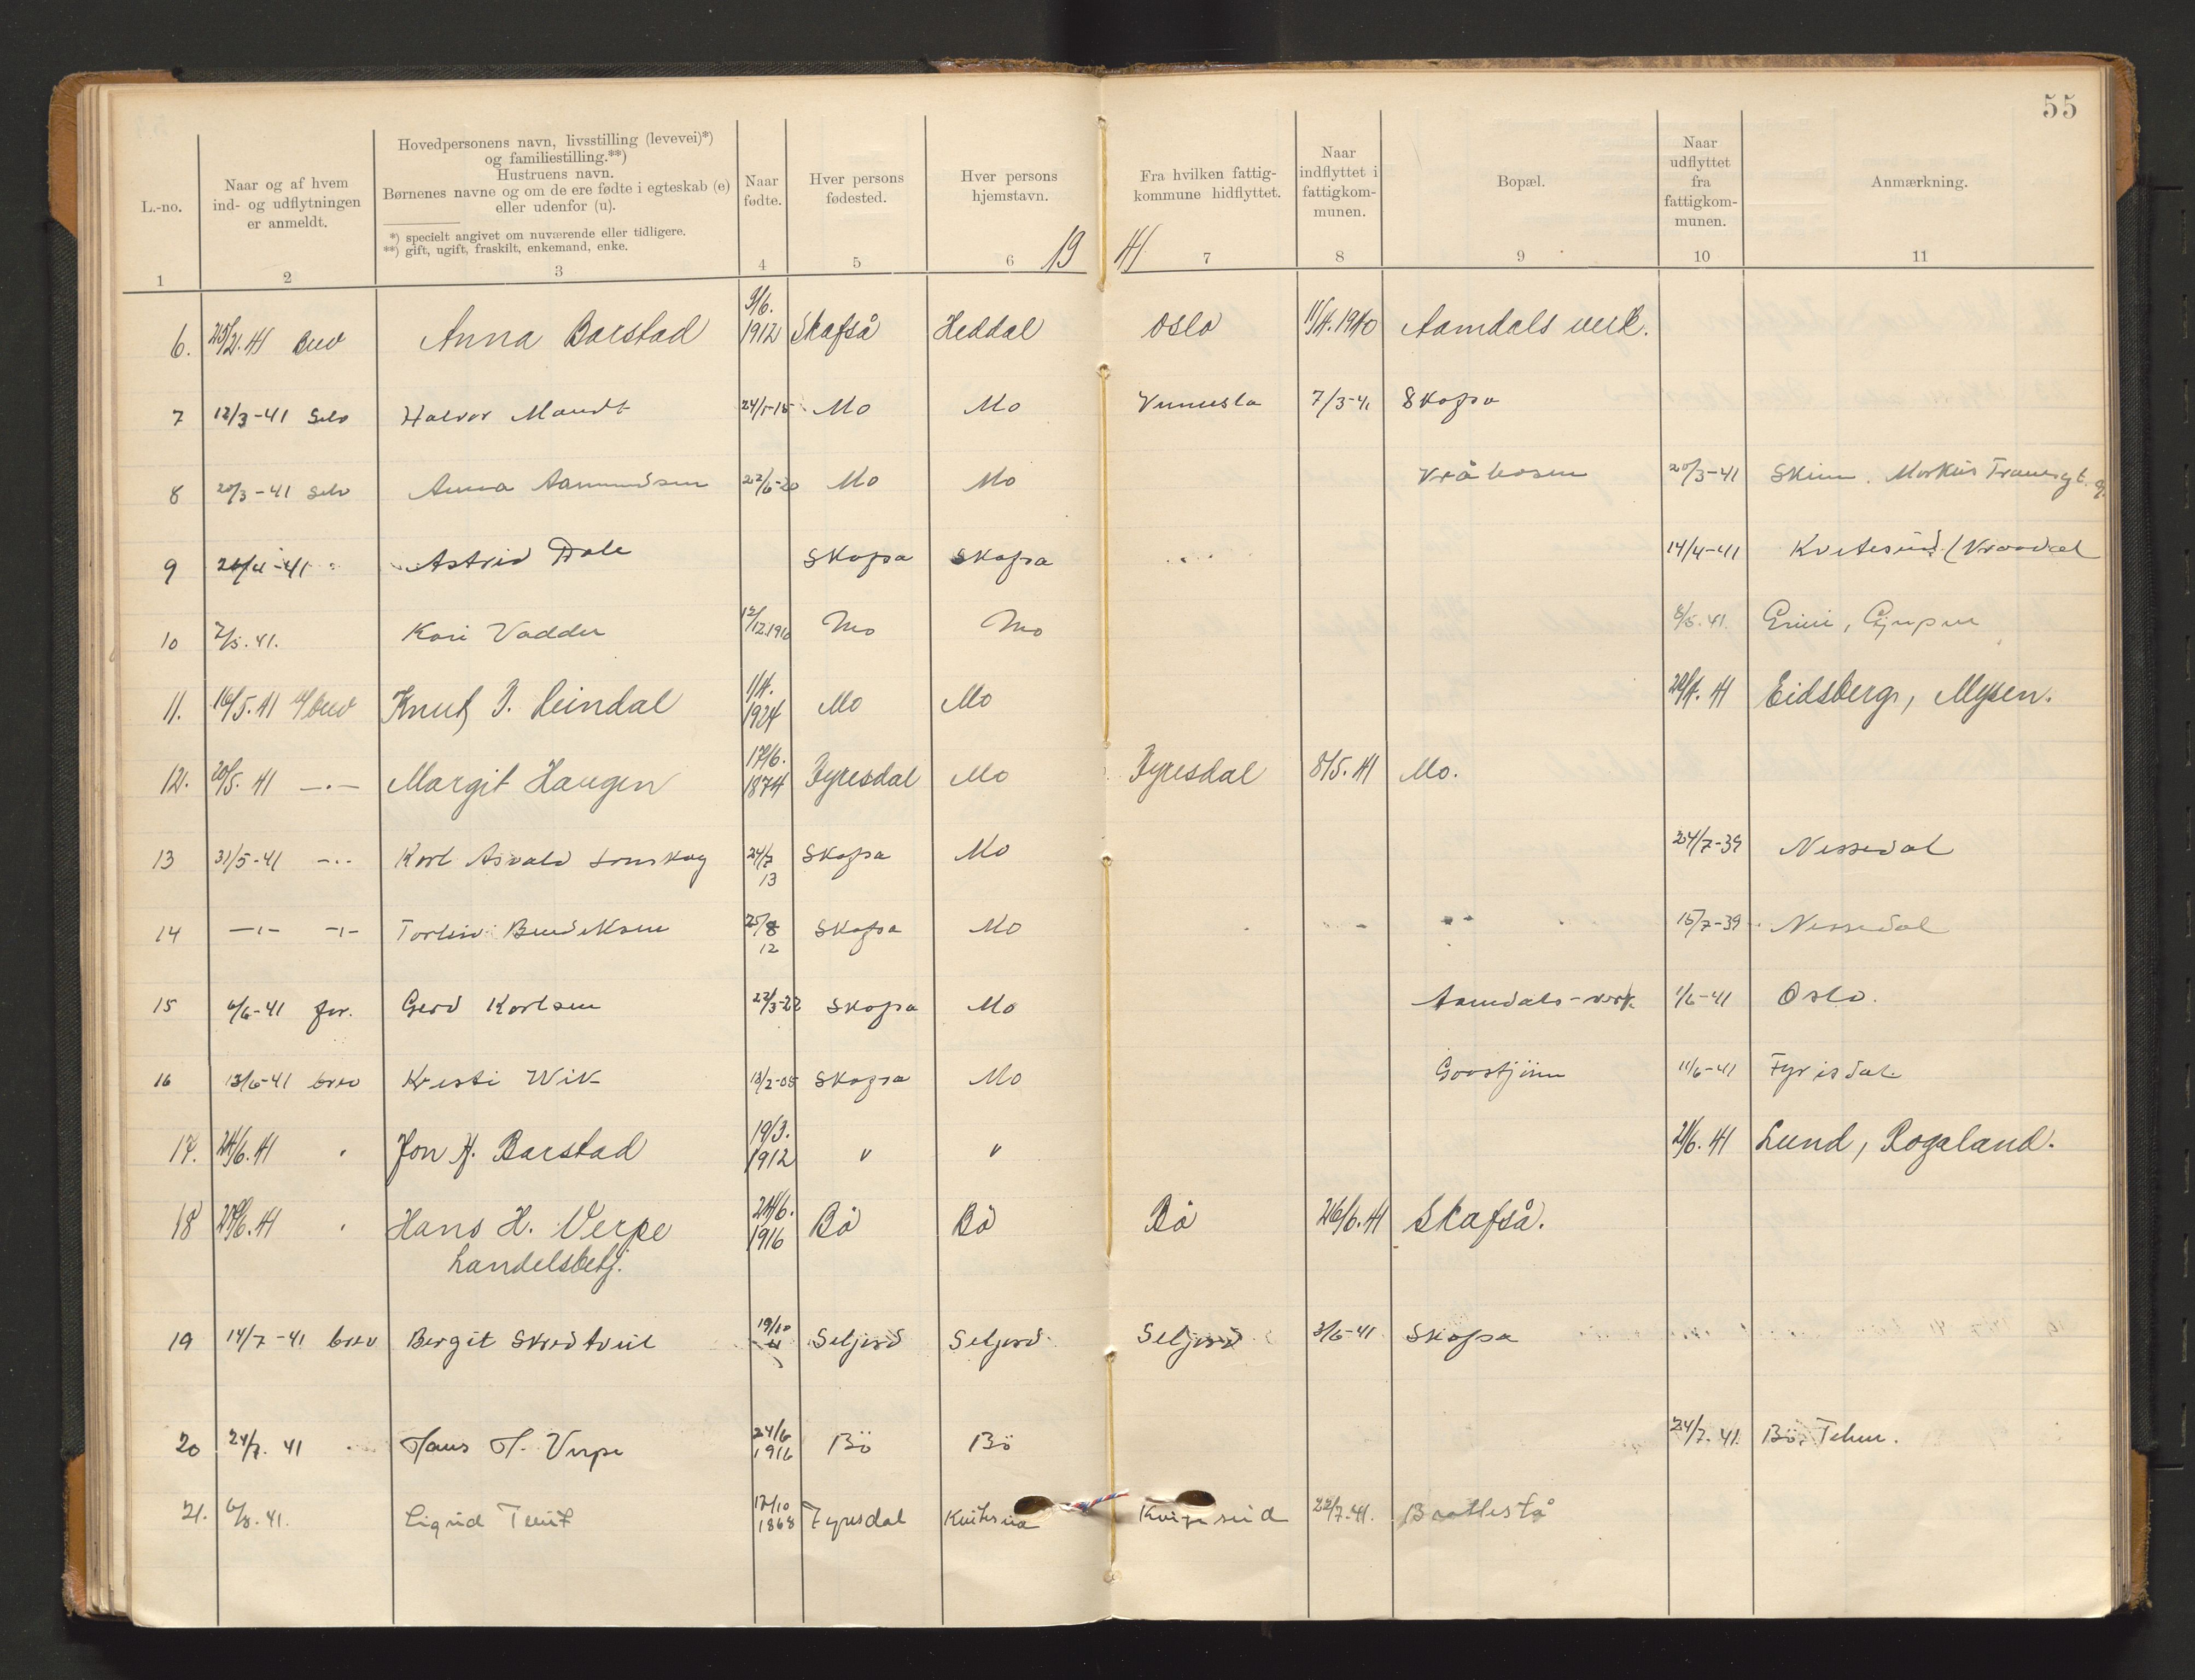 55
L.-no.
Naar og af hvem
ind- og udflytningen
er anmeldt.
Hovedpersonens navn, livsstilling (levevei)*)
og familiestilling.**)
Hustruens navn.
Børnenes navne og om de ere fødte i egteskab (e)
eller udenfor (u).
*) specielt angivet om nuværende eller tidligere.
**) gift, ugift, fraskilt, enkemand, enke.
Naar
fødte.
Hver persons
fødested.
Hver persons
hjemstavn.
Fra hvilken fattig-
kommune hidflyttet.
Naar
indflyttet i
fattigkom-
munen.
Bopæl.
Naar
udflyttet
fra
fattigkom-
munen.
Anmærkning.
1 2 3 4 5 6 19 41 7 8 9 10 11
6. 25/2. 41 Anna Barstad 9/6. 1912 Skafså Heddal Oslo 11/4. 1940 Aamdals verk.
7 12/3-41 Selv Halvor Mandt 24/1-15 Mo Mo Vennesla 7/3-41 Skafsa
8 20/3-41 Selv Anna Aamundsen 22/6-20 Mo Mo Vråliosen 20/3-41 Skien.
9 Astrid Dale Skafsa Skafsa 14/4-41 Kvitesund (Vraadal
10 7/5. 41. Kari Vadder 12/12.1910 Mo Mo 8/5. 41. Gjerpen
11. 16/5. 41 Knut J. Leindal 1/4. 1924 Mo Mo 29/4. 41 Eidsberg, Mysen.
12. 20/5. 41 —·— Margit Haugen 17/6. 1874 Fyresdal Mo Fyresdal 8/5. 41 Mo.
13 31/5-41 -·- Karl Asvald Lonskog 24/7 13 Skafsa Mo 24/7-39 Nissedal
14 —ı— —ı— Torleiv Bendiksen 25/8 12 Skafsa Mo 15/7-39 Nissedal
15 6/6-41 Gerd Karlsen 22/3-22 Skafsa Mo Aamdals-verk 1/6-41 Oslo.
16 13/6-41 brev Kristi Wik 13/2-05 Skafsa Mo 11/6-41 Fyrisdal.
17. 24/6. 41 Jon H. Barstad 19/3. 1912 " " 21/6. 41 Lund, Rogaland.
18 27/6. 41 Hans H. Verpe 24/6. 1916 Bö Bö Bö 26/6. 41 Skafså.
handelsbetj.
19 14/7-41 brev Bergit Skredtveit 19/10 Seljord Seljord Seljord 3/6-41 Skafsa
20 24/7. 41 Hans H. Verpe 24/6 1916 Bö Bö 24/7. 41. Bö, Telem.
21. 6/8. 41. Sigrid Tveit 12/10 1868 Fyresdal Kviteseid 22/7-41. Brattestå